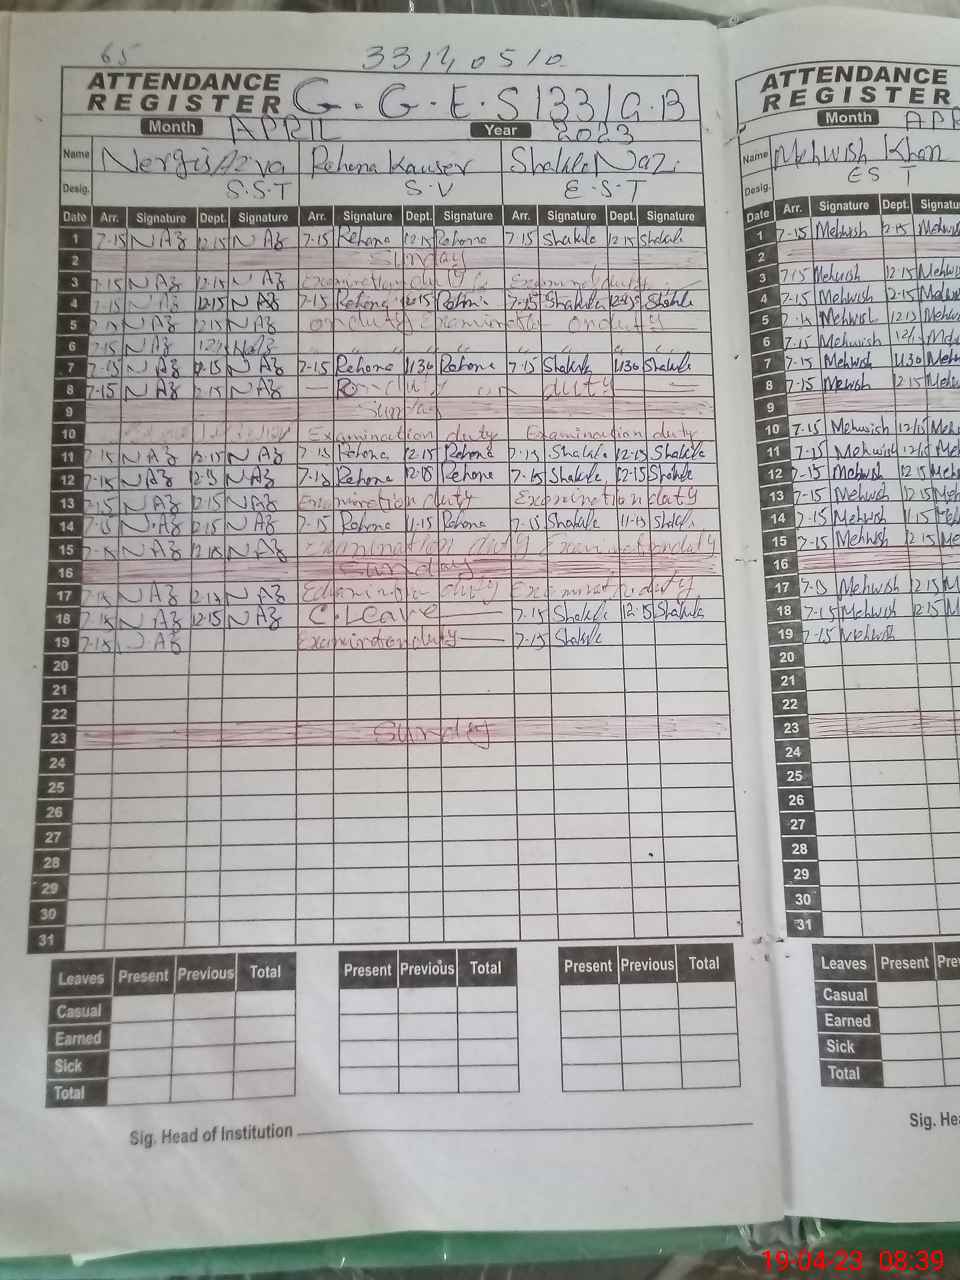 65 33140510
ATTENDANCE REGISTER G.G.E.S 133/G.B
Month APRIL Year 2023
Name Nergis Rehena Kauser Shakila Naz
Desig. S.S.T S.V E.S.T
Date Arr. Signature Dept. Signature Arr. Signature Dept. Signature Arr. Signature Dept. Signature
1 7-15 NAz 12.15 NAz 7-15 Rehena 12-15 Rehena 7-15 Shakila 12-15 Shakila
2 Sunday
3 7-15 NAz 12.15 NAz Examination duty Examination duty
4 7-15 NAz 12.15 NAz 7-15 Rehena 12.15 Rehena 7-15 Shakila 12-15 Shakila
5 NAz 12.15 NAz on duty Examination on duty
6 7-15 NAz NAz
7 7-15 NAz NAz 7-15 Rehena 11.30 Rehena 7-15 Shakila 11.30 Shakila
8 7-15 NAz 12.15 NAz on duty on duty
9 Sunday
10 Examination duty Examination duty
11 7-15 NAz 12.15 NAz 7-15 Rehena 12.15 Rehena 7-15 Shakila 12-15 Shakila
12 7-15 NAz NAz Rehena Rehena 7-15 Shakila 12-15 Shakila
13 7-15 NAz 12.15 NAz Examination duty Examination duty
14 7-15 N.Az 12.15 NAz 7-15 Rehena 11-15 Rehena 7-15 Shakila 11-15 Shakila
15 NAz NAz Examination duty Examination duty
16 Sunday
17 7-15 NAz NAz Examination duty Examination duty
18 7-15 NAz 12.15 NAz C.Leave 7-15 Shakila 12-15 Shakila
19 7-15 NAz Examination duty 7-15 Shakila
20
21
22
23 Sunday
24
25
26
27
28
29
30
31
Leaves Present Previous Total Present Previous Total Present Previous Total
Casual
Earned
Sick
Total
Sig. Head of Institution
ATTENDANCE
REGISTER
Month APR
Name Mehwish Khan
Desig. EST
Date Arr. Signature Dept. Signatu
1 7-15 Mehwish 12-15
2
3 7-15 Mehwish 12-15
4 7-15 Mehwish 12-15
5 Mehwish
6 7-15 Mehwish
7 7-15 Mehwish 11.30
8 7-15 Mehwish 12.15
9
10 7-15 Mehwish 12.15
11 7-15 Mehwish
12 7-15 Mehwish 12.15
13 7-15 Mehwish 12.15
14 7-15 Mehwish 11.15
15 7-15 Mehwish 12.15
16
17 Mehwish 12.15
18 7-15 Mehwish 12.15
19 7-15 Mehwish
20
21
22
23
24
25
26
27
28
29
30
31
Leaves Present Pre
Casual
Earned
Sick
Total
Sig. He
19-04-23 08:39